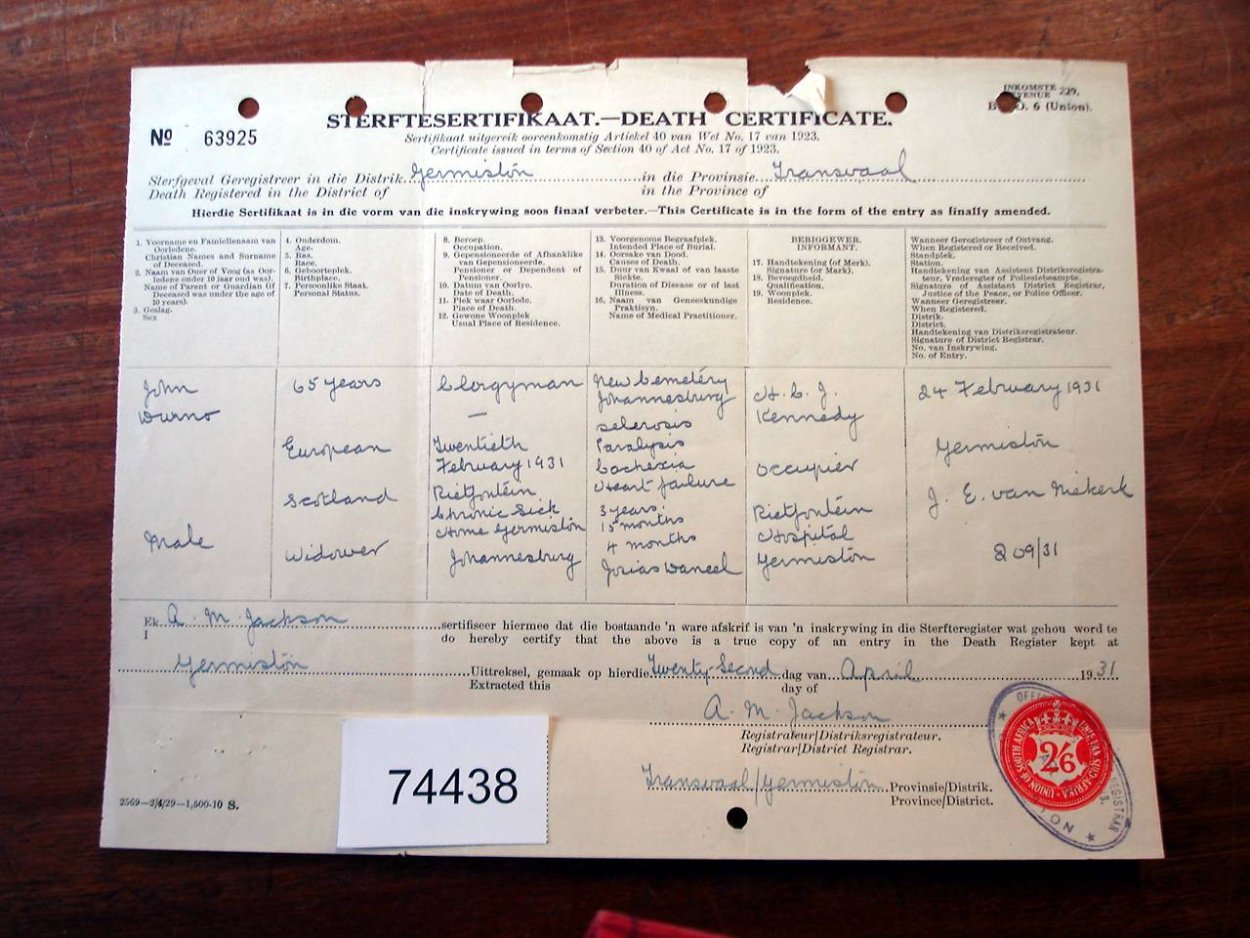 INKOMSTE 229.
REVENUE
B.M.D. 6 (Union).
STERFTESERTIFIKAAT.—DEATH CERTIFICATE.
No 63925
Sertifikaat uitgereik ooreenkomstig Artiekel 40 van Wet No. 17 van 1923.
Certificate issued in terms of Section 40 of Act No. 17 of 1923.
Sterfgeval Geregistreer in die Distrik Germiston in die Provinsie Transvaal
Death Registered in the District of in the Province of
Hierdie Sertifikaat is in die vorm van die inskrywing soos finaal verbeter.—This Certificate is in the form of the entry as finally amended.
1. Voorname en Familienaam van
Oorledene.
Christian Names and Surname
of Deceased.
2. Naam van Ouer of Voog (as Oor-
ledene onder 10 jaar oud was).
Name of Parent or Guardian (if
Deceased was under the age of
10 years).
3. Geslag.
Sex
4. Ouderdom.
Age.
5. Ras.
Race.
6. Geboorteplek.
Birthplace.
7. Persoonlike Staat.
Personal Status.
8. Beroep.
Occupation.
9. Gepensioneerde of Afhanklike
van Gepensioneerde.
Pensioner or Dependent of
Pensioner.
10. Datum van Oorlye.
Date of Death.
11. Plek waar Oorlede.
Place of Death.
12. Gewone Woonplek
Usual Place of Residence.
13. Voorgenome Begraafplek.
Intended Place of Burial.
14. Oorsake van Dood.
Causes of Death.
15. Duur van Kwaal of van laaste
Siekte.
Duration of Disease or of last
Illness.
16. Naam van Geneeskundige
Praktisyn.
Name of Medical Practitioner.
BERIGGEWER.
INFORMANT.
17. Handtekening (of Merk).
Signature (or Mark).
18. Bevoegdheid.
Qualification.
19. Woonplek.
Residence.
Wanneer Geregistreer of Ontvang.
When Registered or Received.
Standplek.
Station.
Handtekening van Assistent Distriksregistra-
teur, Vrederegter of Polisiebeampte.
Signature of Assistant District Registrar,
Justice of the Peace, or Police Officer.
Wanneer Geregistreer.
When Registered.
Distrik.
District.
Handtekening van Distriksregistrateur.
Signature of District Registrar.
No. van Inskrywing.
No. of Entry.
John
Durno
Male
65 years
European
Scotland
Widower
Clergyman
—
Twentieth
February 1931
Rietfontein
Chronic Sick
Home Germiston
Johannesburg
New Cemetery
Johannesburg
sclerosis
Paralysis
Cachexia
Heart failure
3 years.
15 months
4 months
H. C. J.
Kennedy
Occupier
Rietfontein
Hospital
Germiston
24 February 1931
Germiston
J. E. van Niekerk
209/31
Ek A. M. Jackson sertifiseer hiermee dat die bostaande 'n ware afskrif is van 'n inskrywing in die Sterfteregister wat gehou word te
I do hereby certify that the above is a true copy of an entry in the Death Register kept at
Germiston Uittreksel, gemaak op hierdie Twenty Second dag van April 1931
Extracted this day of
A. M. Jackson
Registrateur/Distriksregistrateur.
Registrar/District Registrar.
Transvaal/Germiston Provinsie/Distrik.
Province/District.
2569—2/4/29—1,500-10 S.
74438
UNION OF SOUTH AFRICA
UNIE VAN SUID AFRIKA
2/6